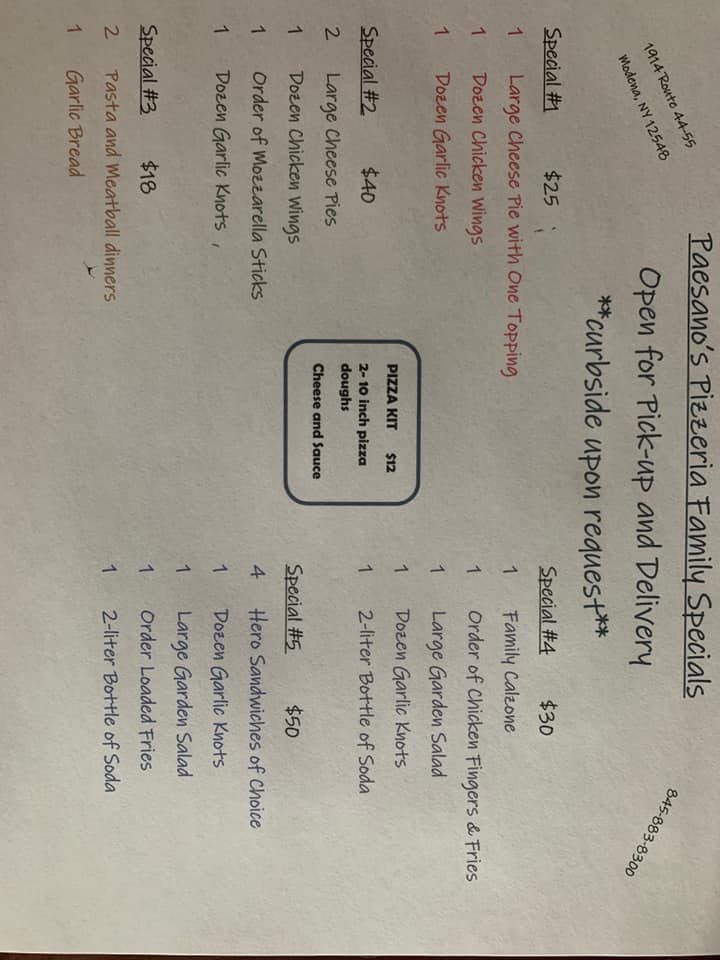 Paesano's Pizzeria Family Specials
1914 Route 44-55
Modena, NY 12548
845-883-8300
Open for Pick-up and Delivery
**curbside upon request**
Special #1 $25
1 Large Cheese Pie with One Topping
1 Dozen Chicken Wings
1 Dozen Garlic Knots
Special #2 $40
2 Large Cheese Pies
1 Dozen Chicken Wings
1 Order of Mozzarella Sticks
1 Dozen Garlic Knots
Special #3 $18
2 Pasta and Meatball dinners
1 Garlic Bread
PIZZA KIT $12
2- 10 inch pizza
doughs
Cheese and Sauce
Special #4 $30
1 Family Calzone
1 Order of Chicken Fingers & Fries
1 Large Garden Salad
1 Dozen Garlic Knots
1 2-liter Bottle of Soda
Special #5 $50
4 Hero Sandwiches of Choice
1 Dozen Garlic Knots
1 Large Garden Salad
1 Order Loaded Fries
1 2-liter Bottle of Soda